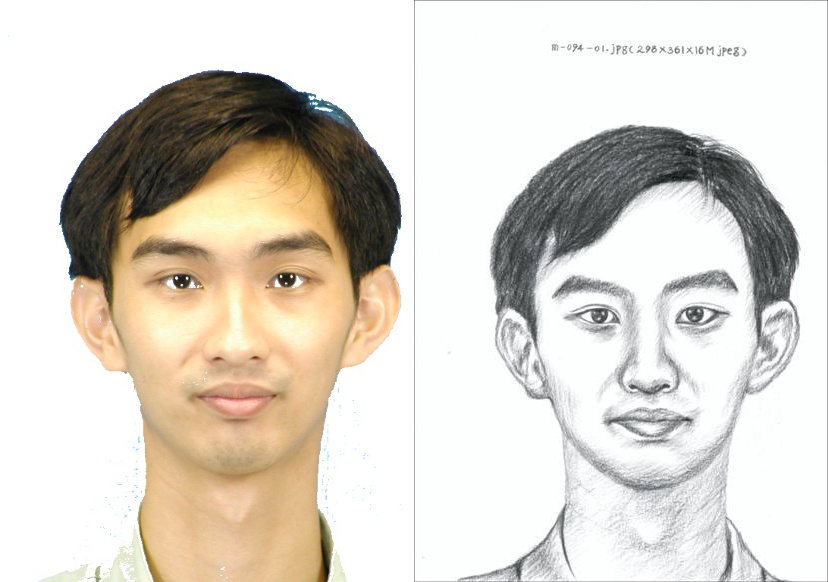 m-094-01.jpg(298×361×16M jpeg)